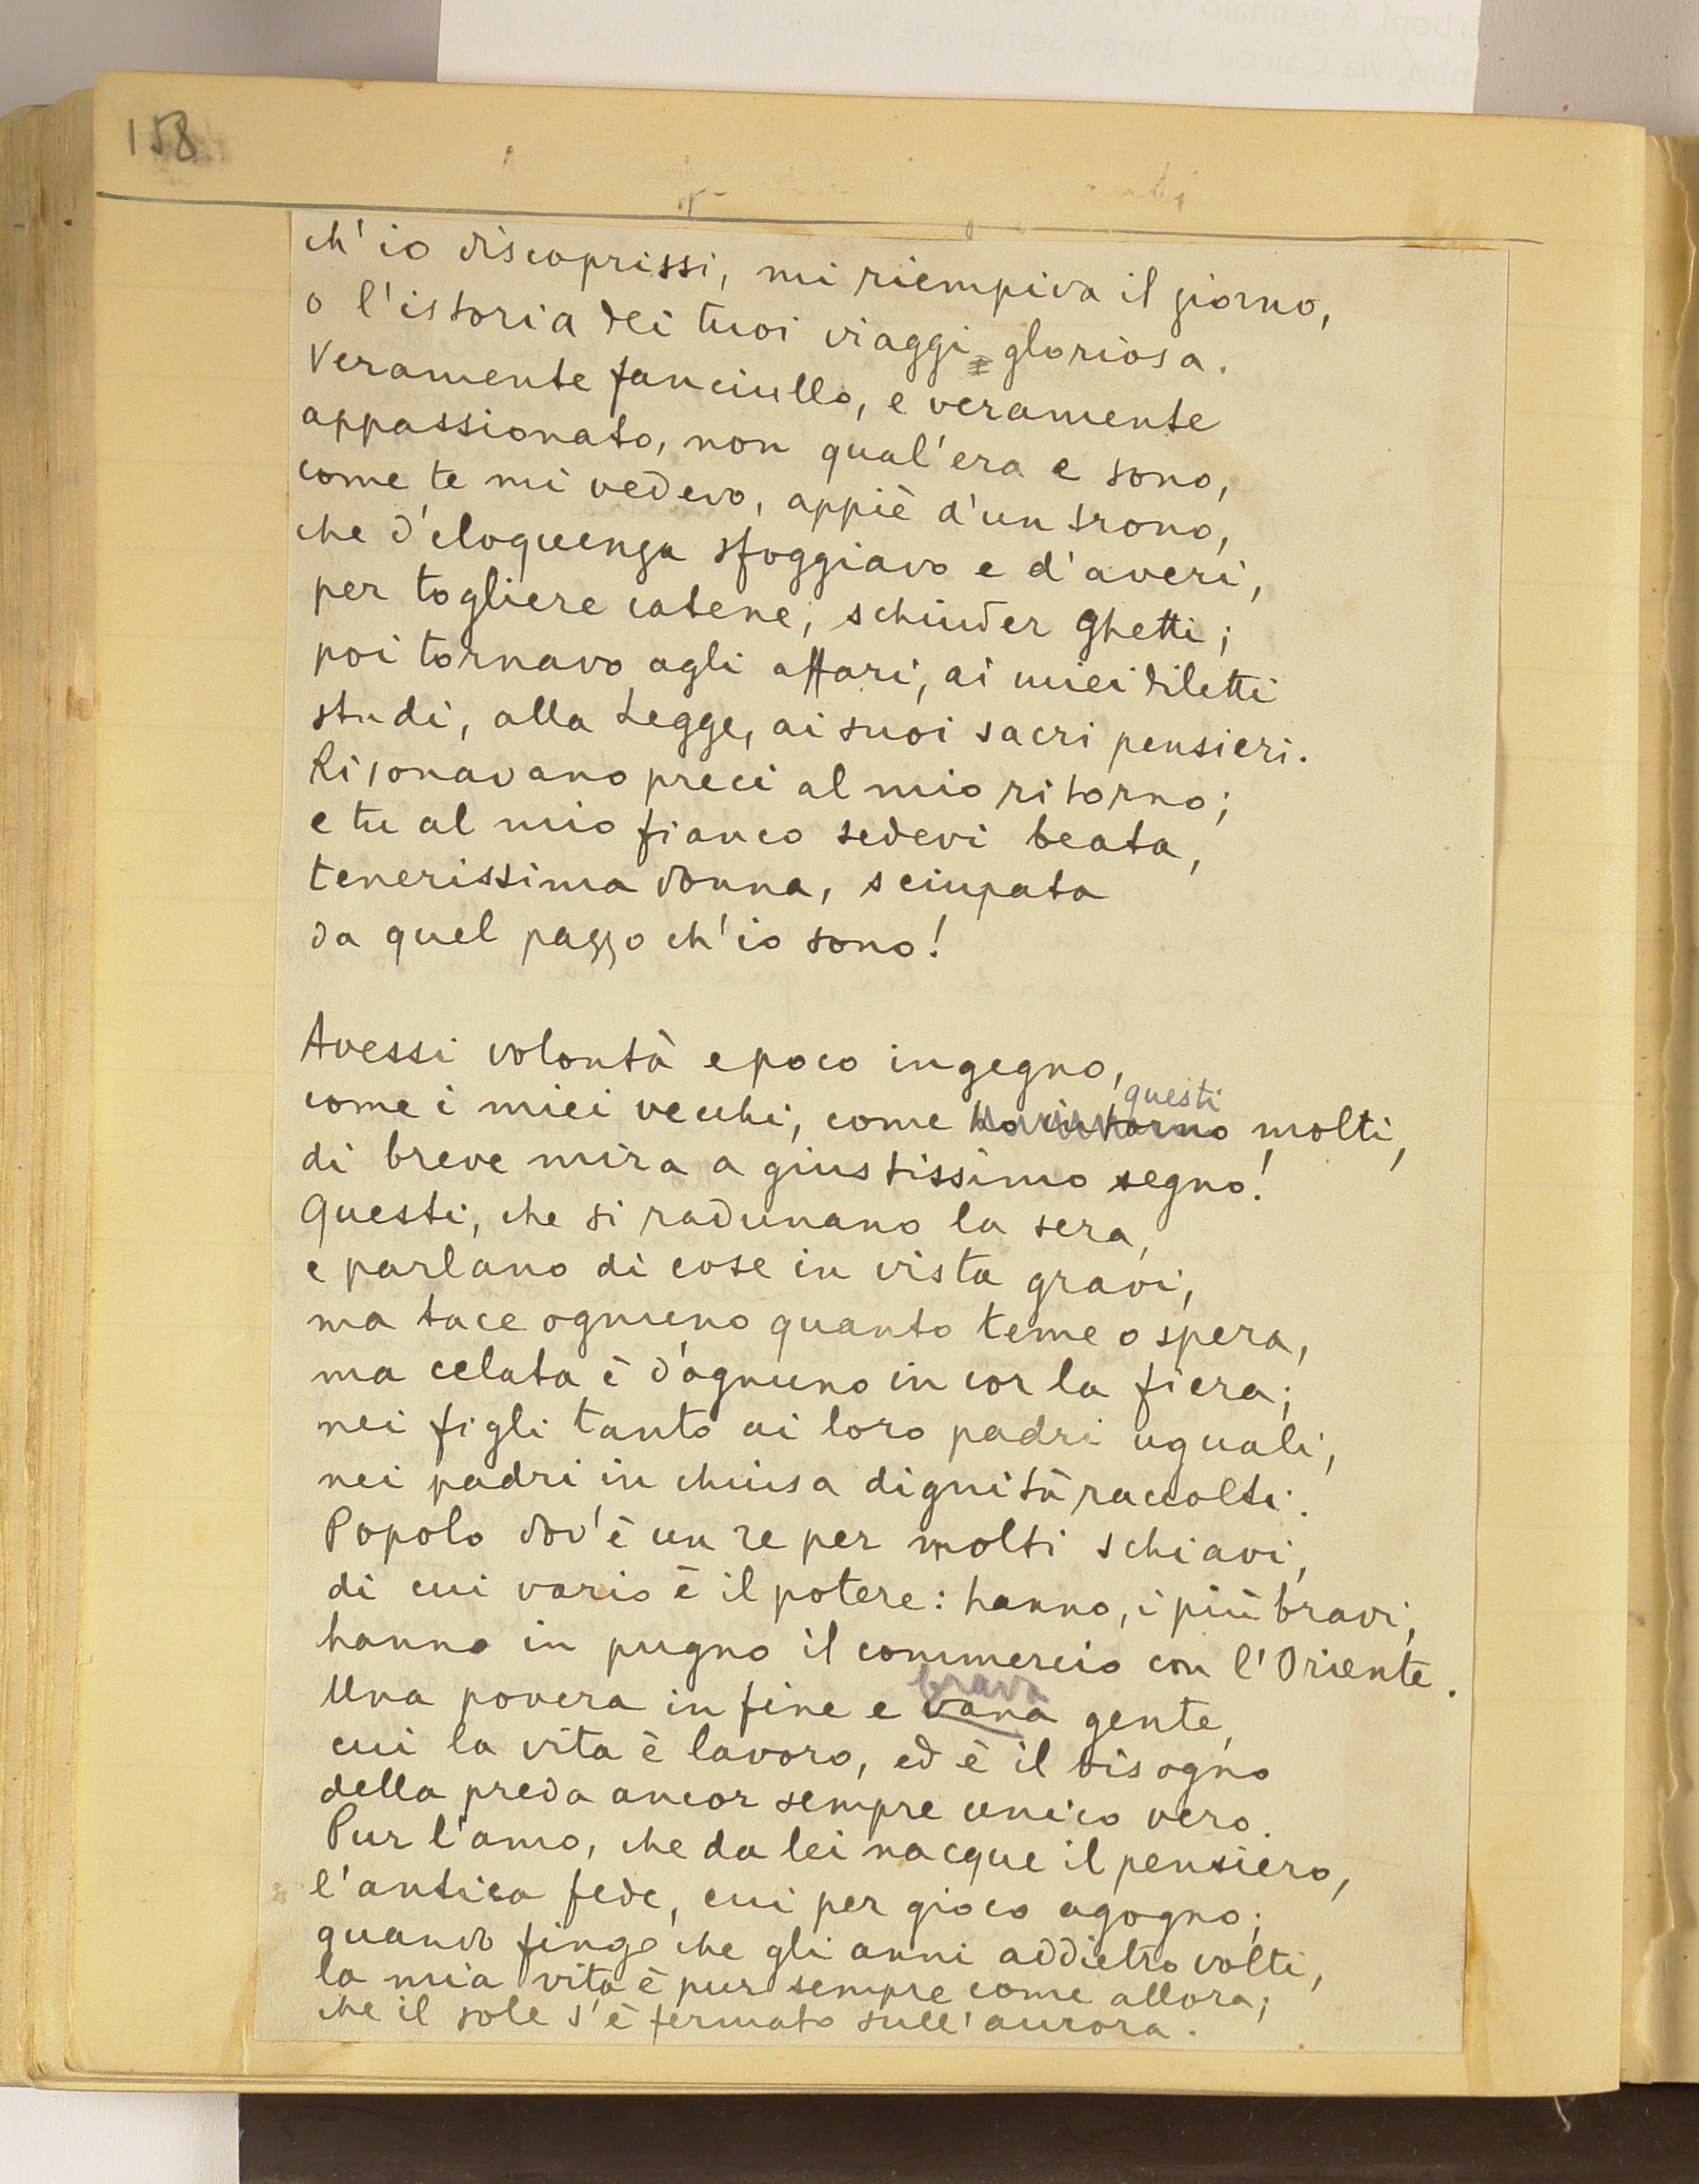 158
ch'io discoprissi, mi riempiva il giorno,
o l'istoria dei tuoi viaggi gloriosa.
Veramente fanciullo, e veramente
appassionato, non qual'era e sono,
come te mi vedevo, appiè d'un trono,
che d'eloquenza sfoggiavo e d'averi,
per togliere catene, schiuder ghetti;
poi tornavo agli affari, ai miei diletti
studi, alla Legge, ai suoi sacri pensieri.
Risonavano preci al mio ritorno;
e tu al mio fianco sedevi beata,
tenerissima donna, sciupata
da quel pazzo ch'io sono!
Avessi volontà e poco ingegno,
questi
come i miei vecchi, come ho intorno molti,
di breve mira a giustissimo segno!
Questi, che si radunano la sera,
e parlano di cose in vista gravi,
ma tace ognuno quanto teme o spera,
ma celata è d'ognuno in cor la fiera;
nei figli tanto ai loro padri uguali,
nei padri in chiusa dignità raccolti.
Popolo dov'è un re per molti schiavi,
di cui vario è il potere: hanno, i più bravi,
hanno in pugno il commercio con l'Oriente.
brava
Una povera in fine e vana gente,
cui la vita è lavoro, ed è il bisogno
della preda ancor sempre unico vero.
Pur l'amo, che da lei nacque il pensiero,
l'antica fede, cui per gioco agogno;
quando fingo che gli anni addietro volti,
la mia vita è pur sempre come allora;
che il sole s'è fermato sull'aurora.